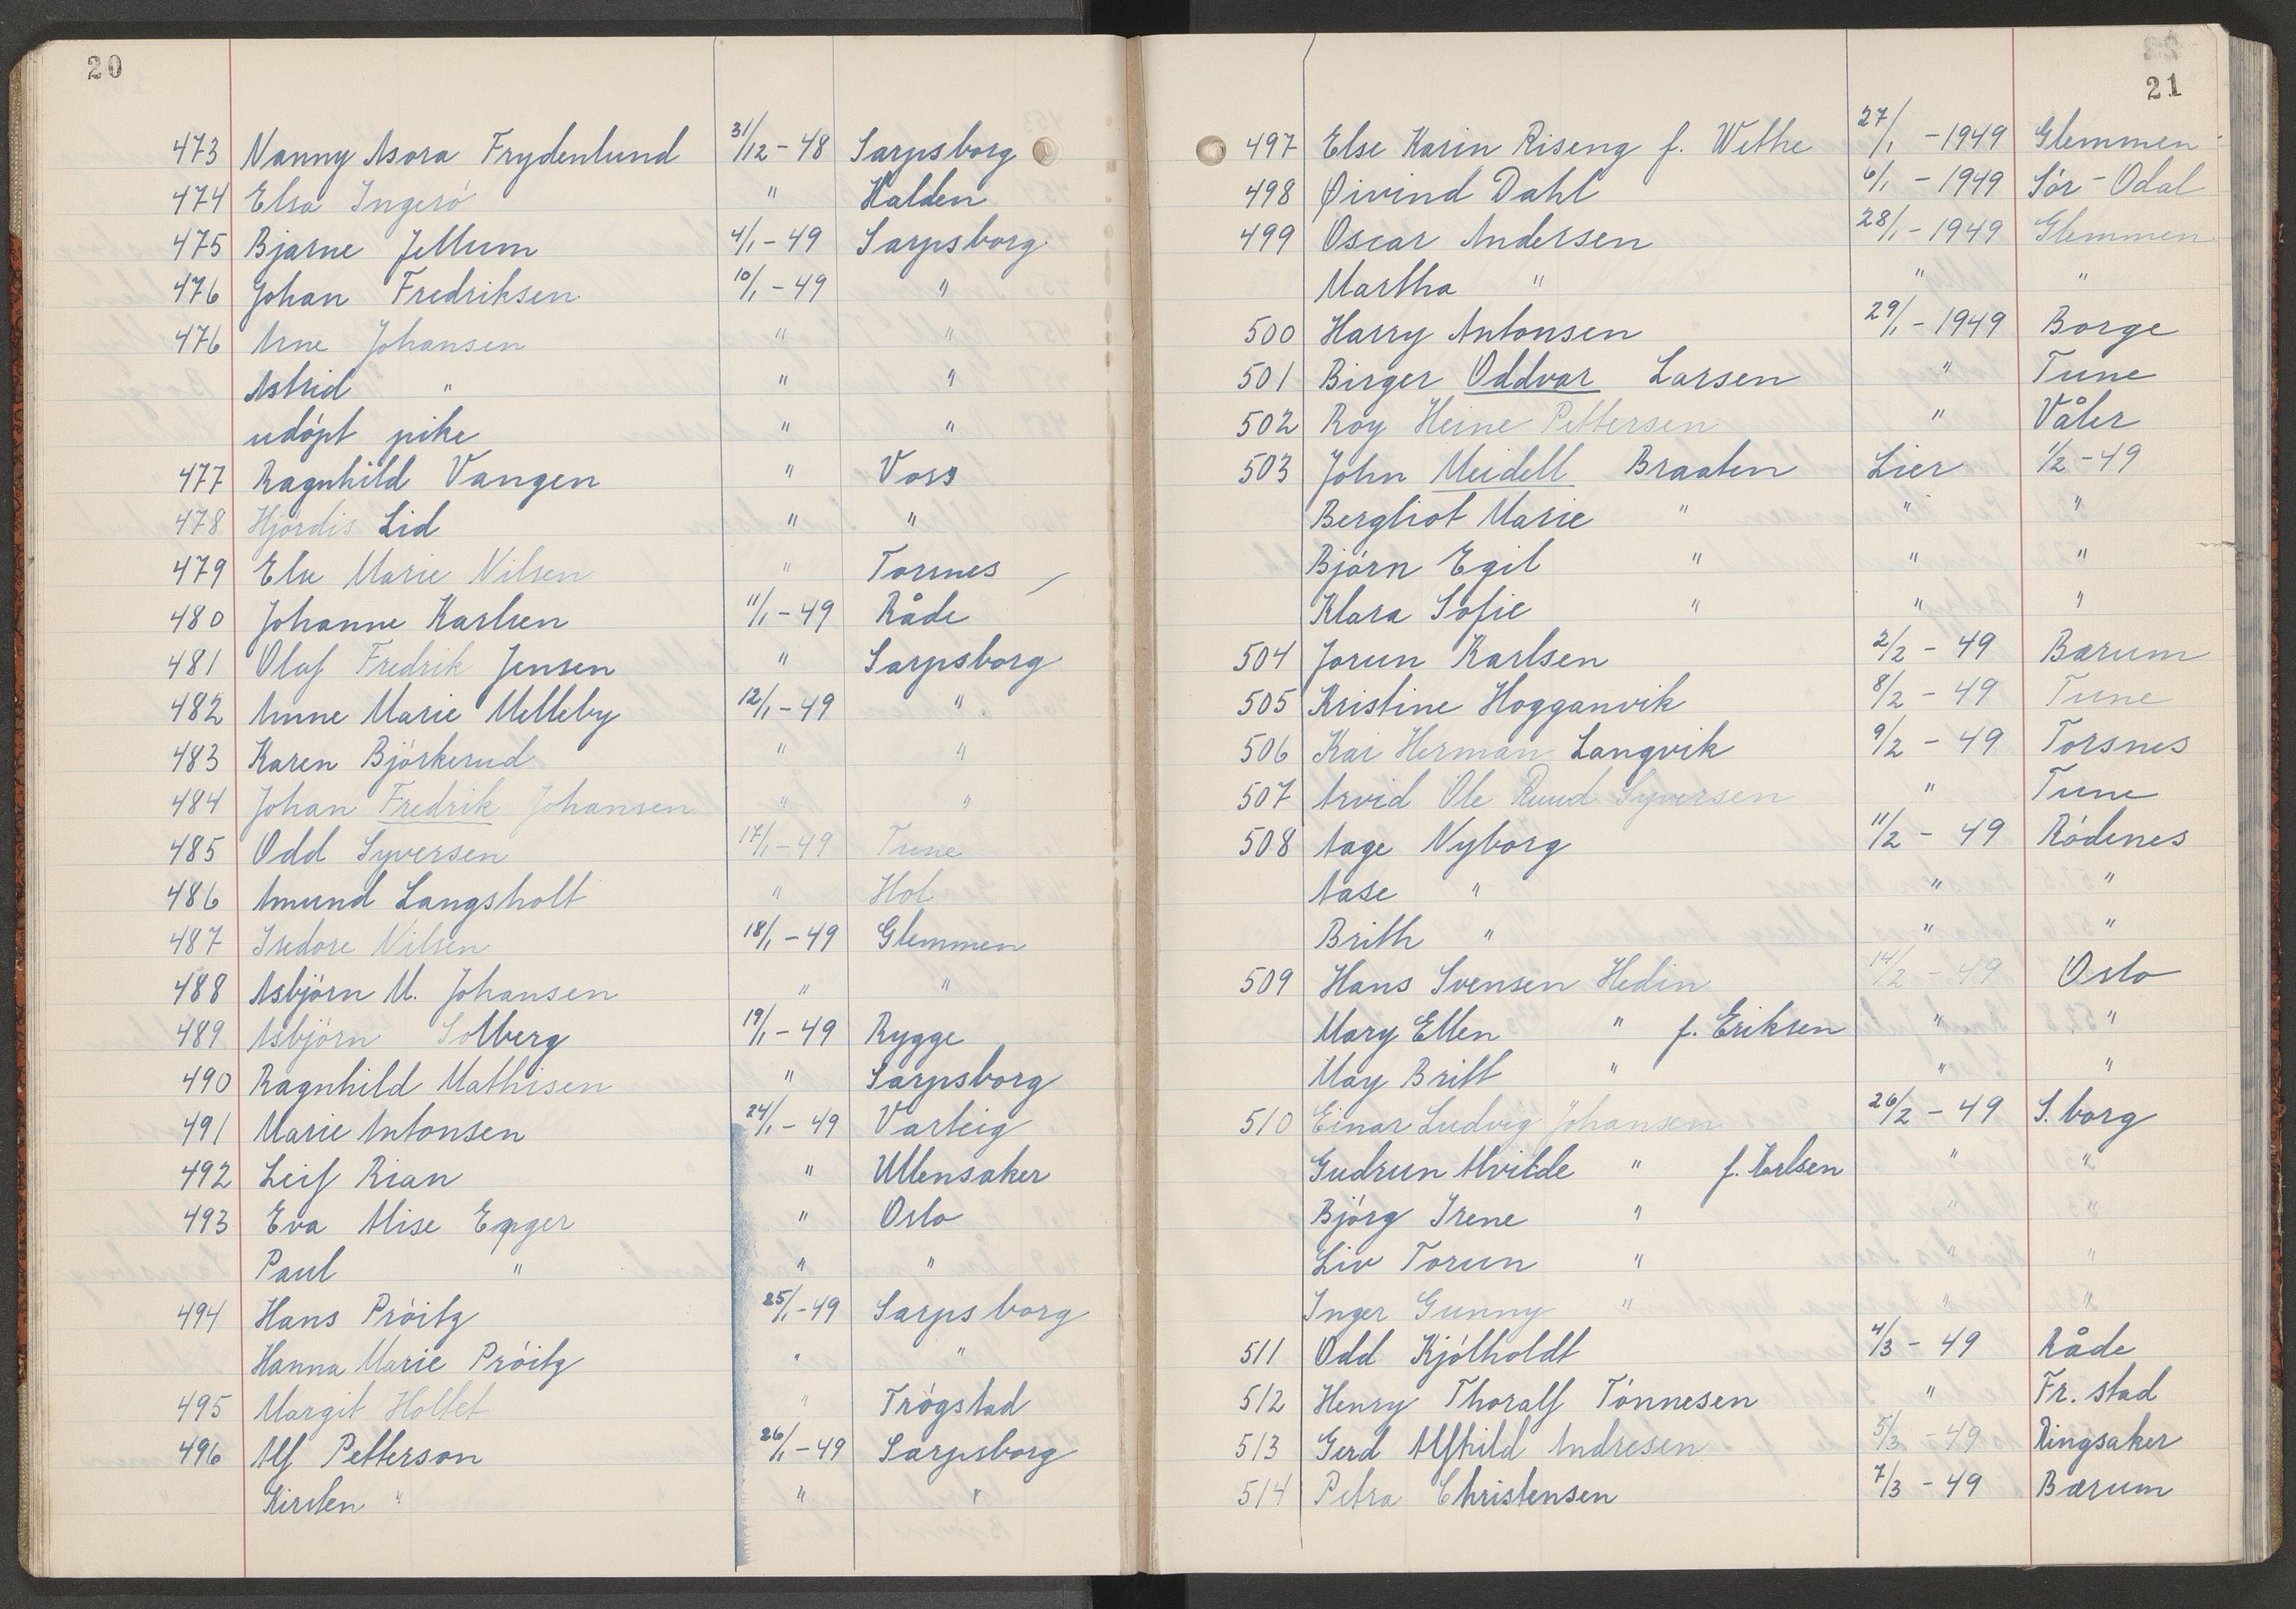 20
473 Nanny Asora Frydenlund 31/12 - 48 Sarpsborg
474 Elsa Ingerö " Halden
475 Bjarne Jellum 4/1 - 49 Sarpsborg
476 Johan Fredriksen 10/1 - 49 "
476 Arne Johansen " "
Astrid " " "
udöpt pike " "
477 Ragnhild Vangen " Voss
478 Hjördis Lid " "
479 Marie Nilsen " Torsnes
480 Johanne Karlsen 11/1 - 49 Råde
481 Olaf Fredrik Jensen " Sarpsborg
482 Anne Marie Melleby 12/1 - 49 "
483 Karen Björkerud " "
484 Johan Fredrik Johansen " "
485 Odd Syversen 17/1 - 49 Tune
486 Amund Langsholt " Hol
487 Isedore Nilsen 18/1 - 49 Glemmen
488 Asbjörn M. Johansen " "
489 Asbjörn Solberg 19/1 - 49 Rygge
490 Ragnhild Mathisen " Sarpsborg
491 Marie Antonsen 24/1 - 49 Varteig
492 Leif Rian " Ullensaker
493 Eva Alise Enger " Oslo
Paul " " "
494 Hans Pröitz 25/1 - 49 Sarpsborg
Hanna Marie Pröitz " "
495 Margit Holtet " Trögstad
496 Alf Petterson 26/1 - 49 Sarpsborg
Kirsten " " "
21
497 Else Karin Riseng f. Wethe 27/1 - 1949 Glemmen
498 Øivind Dahl 6/1 - 1949 Sör-Odal
499 Oscar Andersen 28/1 - 1949 Glemmen
Martha " " "
500 Harry Antonsen 29/1 - 1949 Borge
501 Birger Oddvar Larsen " Tune
502 Roy Heine Pettersen " Våler
503 John Meidell Braaten Lier 1/2 - 49
Bergliot Marie " " "
Björn Egil " " "
Klara Sofie " " "
504 Jorun Karlsen 2/2 - 49 Bærum
505 Kristine Hogganvik 8/2 - 49 Tune
506 Kai Herman Langvik 9/2 - 49 Torsnes
507 Arvid Ole Ruud Syversen " Tune
508 Aage Nyborg 11/2 - 49 Rödenes
Aase " " "
Brith " " "
509 Hans Svensen Hedin 14/2 - 49 Oslo
Mary Ellen " f. Eriksen " "
May Britt " " "
510 Einar Ludvig Johansen 26/2 - 49 S.borg
Gudrun Alvilde " f. " "
Björg Irene " " "
Liv Torun " " "
Inger Gunny " " "
511 Odd Kjölholdt 4/3 - 49 Råde
512 Henry Thoralf Tönnesen " Fr.stad
513 Gerd Alfhild Andresen 5/3 - 49 Ringsaker
514 Petra Christensen 7/3 - 49 Bærum